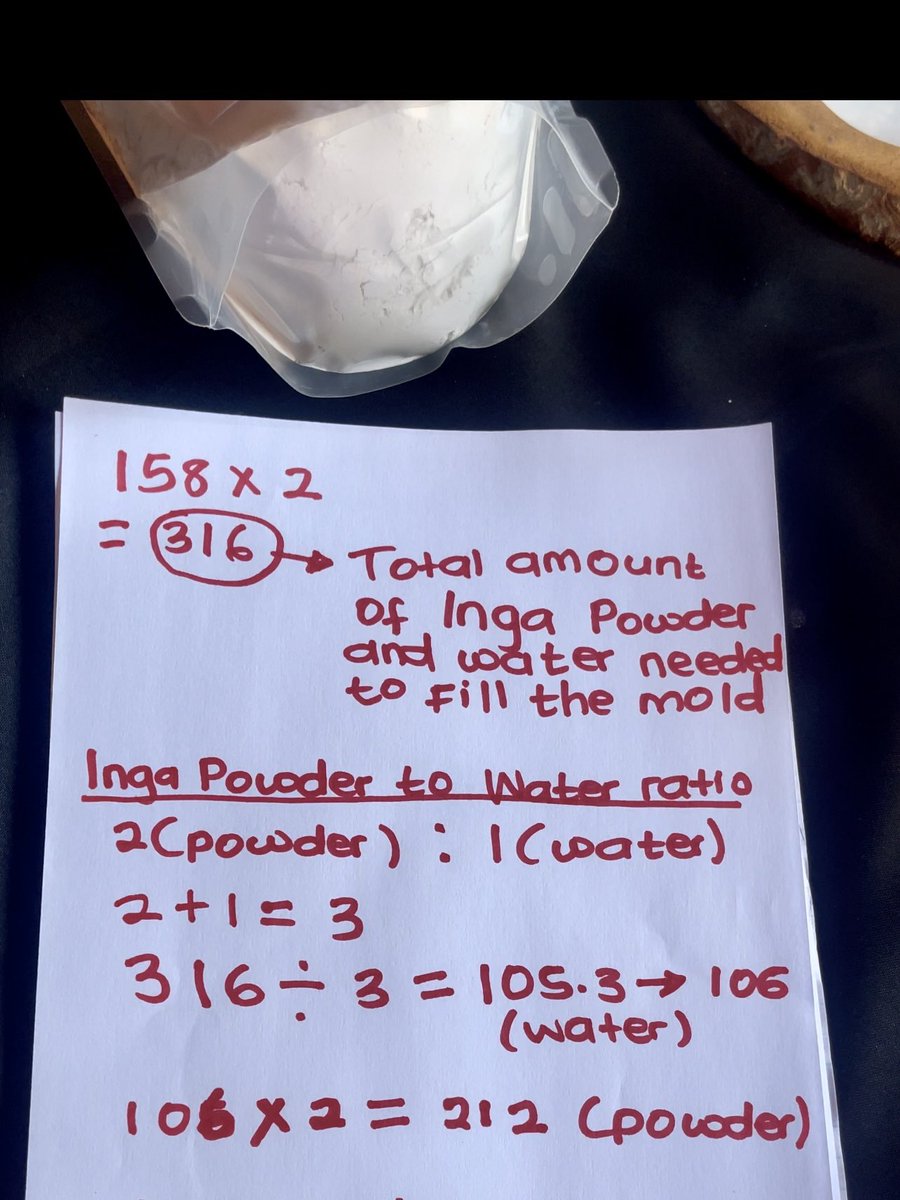 158 x 2
= 316 → Total amount
of Inga Powder
and water needed
to Fill the mold
Inga Powder to Water ratio
2 (powder) : 1 (water)
2 + 1 = 3
316 ÷ 3 = 105.3 → 106
(water)
106 x 2 = 212 (powder)